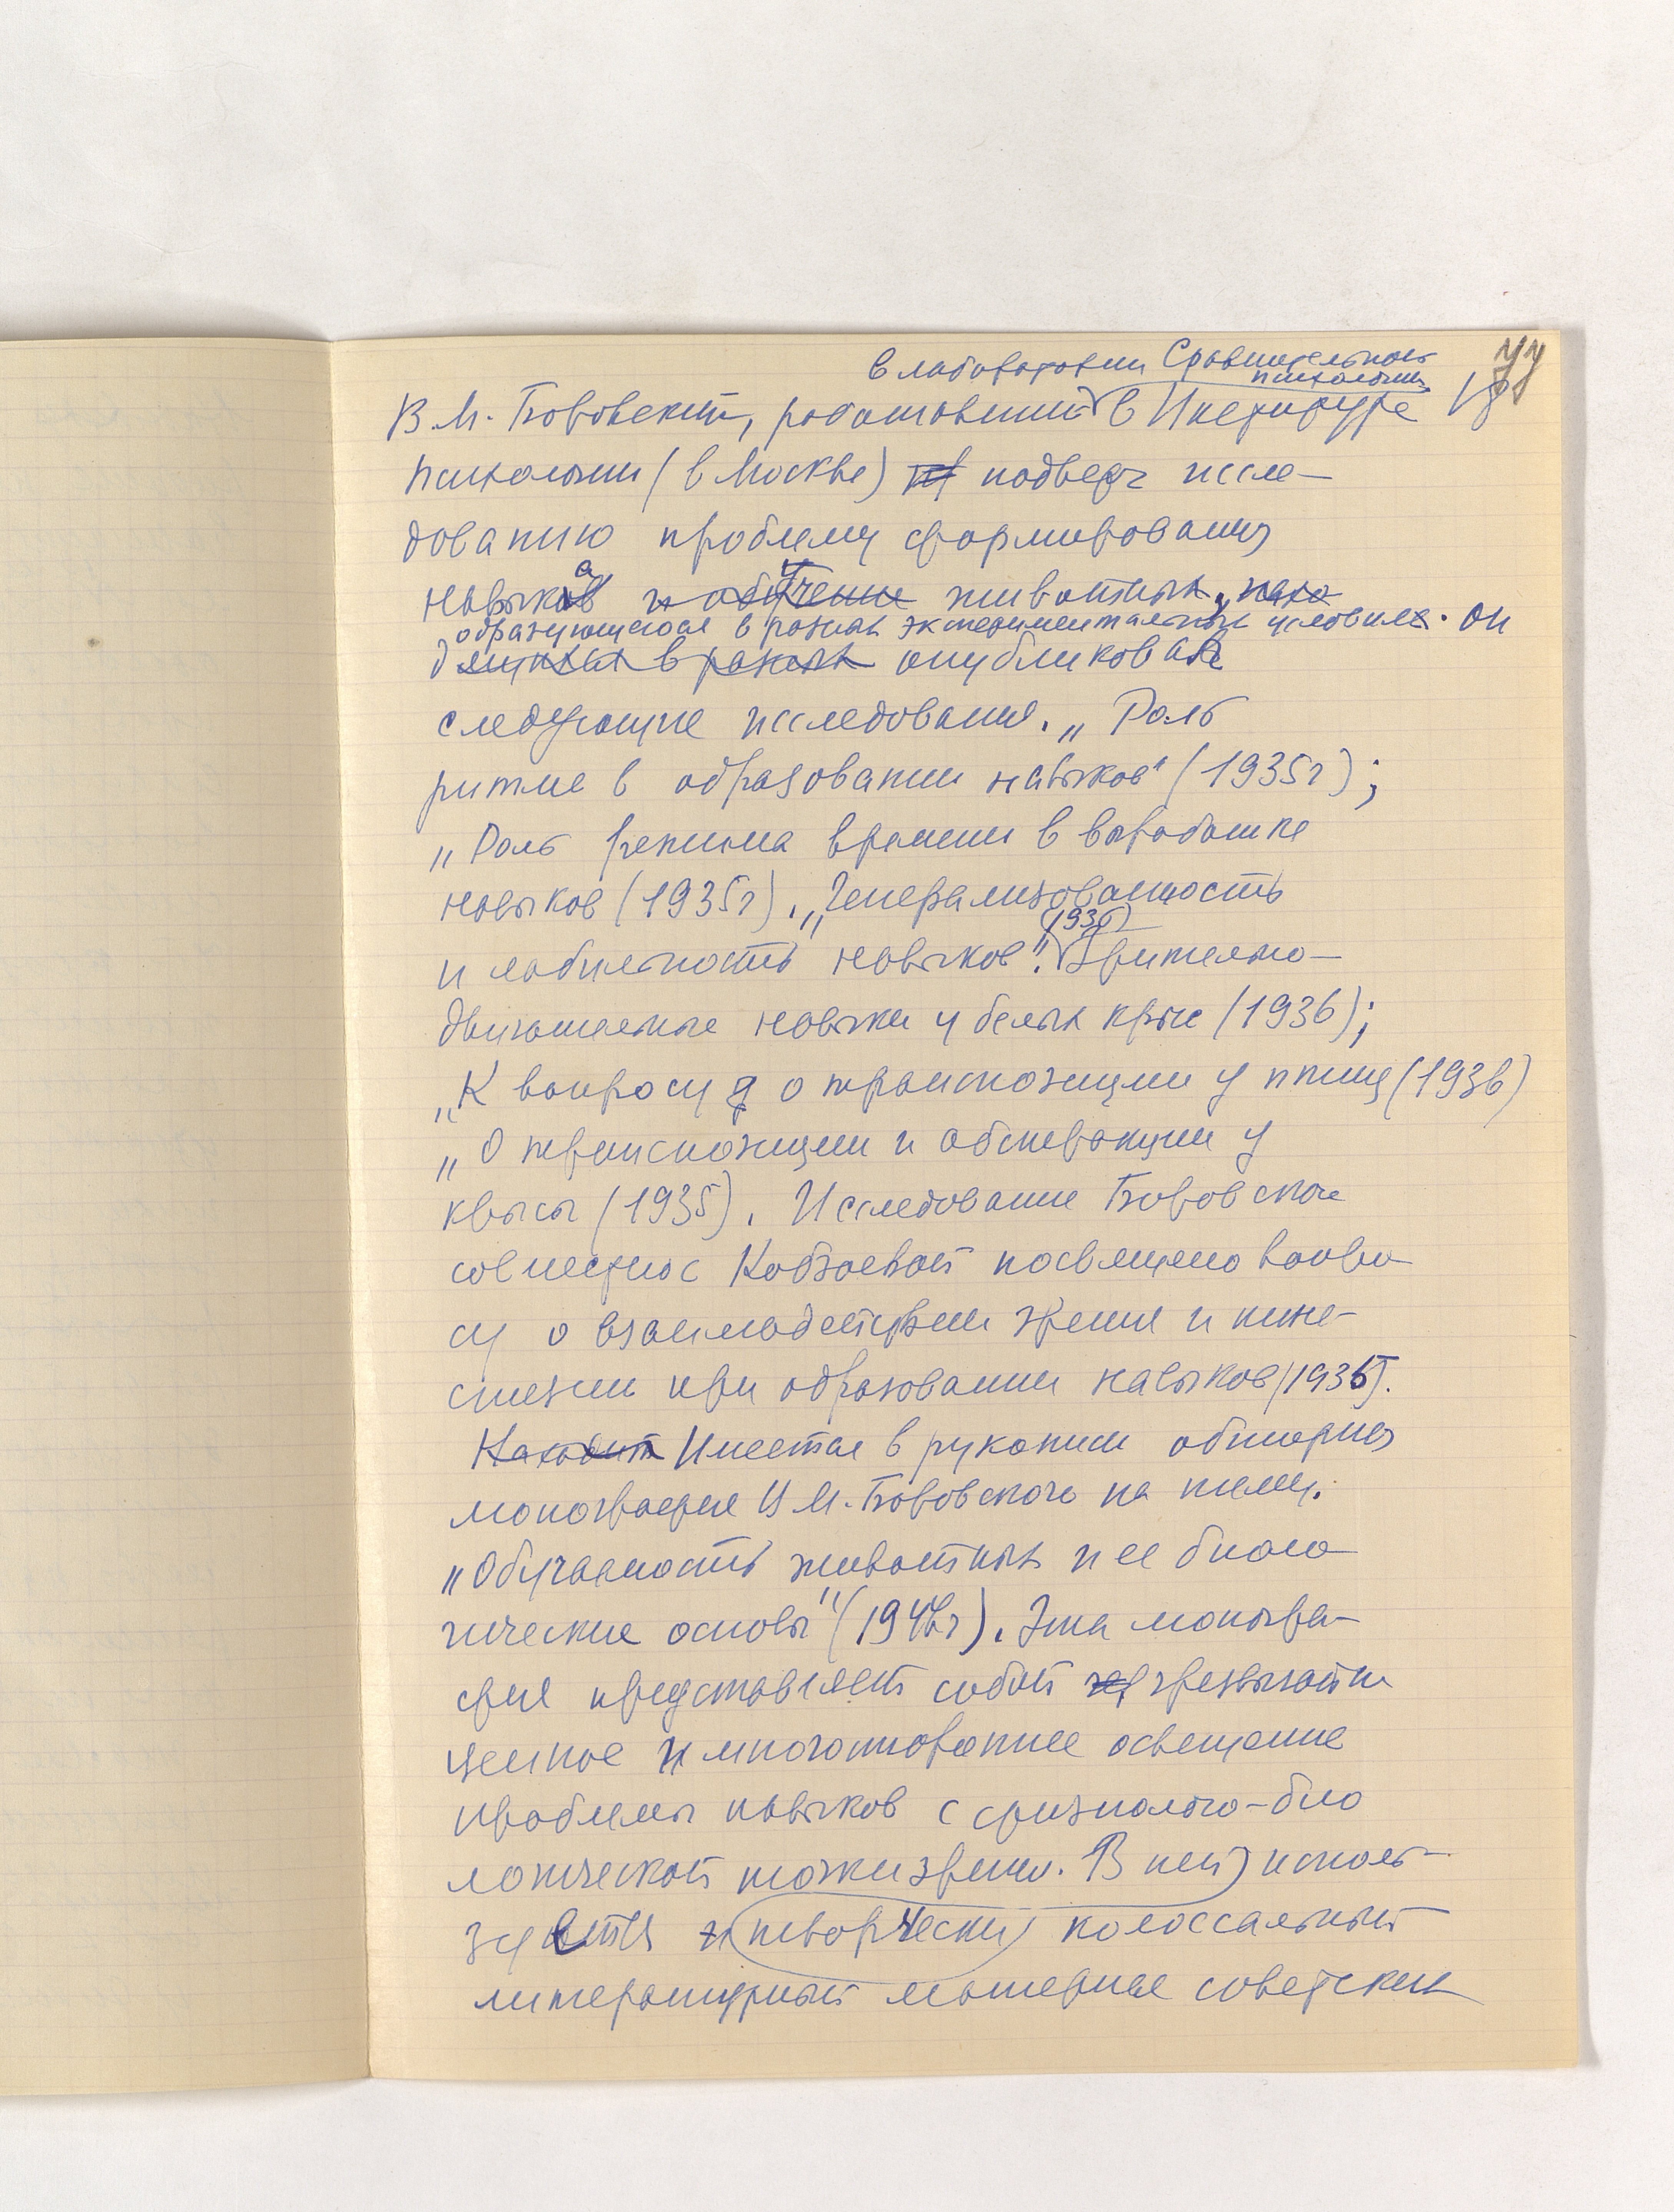 в лаборатории Сравнительной
психологии
18
В.М. Боровский, работавший в Институте
психологии (в Москве) подверг иссле-
дованию проблему формирования
навыка и обучение животных, нахо
образующегося в разных экспериментальных условиях. Он
дящихся в разных опубликовал
следующие исследования. „Роль
ритма в образовании навыков" (1935г);
„Роль режима времени в выработке
навыков (1935г). „Генерализованность
(1936)
и лабильность навыков". Зрительно-
двигательные навыки у белых крыс (1936);
„К вопросу о транспозиции у птиц (1936)
„О транспозиции и абстракции у
крысы (1935). Исследование Боровского
совместно с Кобзаевой посвящено вопро-
су о взаимодействии зрения и кине-
стезии при образовании навыков (1935).
Находит Имеется в рукописи обширная
монография В.М. Боровского на тему:
„Обучаемость животных и ее биоло
гические основы" (1946г). Эта моногра-
фия представляет собой чрезвычайно
ценное и многостороннее освещение
проблемы навыков с физиолого-био
логической точки зрения. В ней исполь-
зуется творчески колоссальный
литературный материал советских